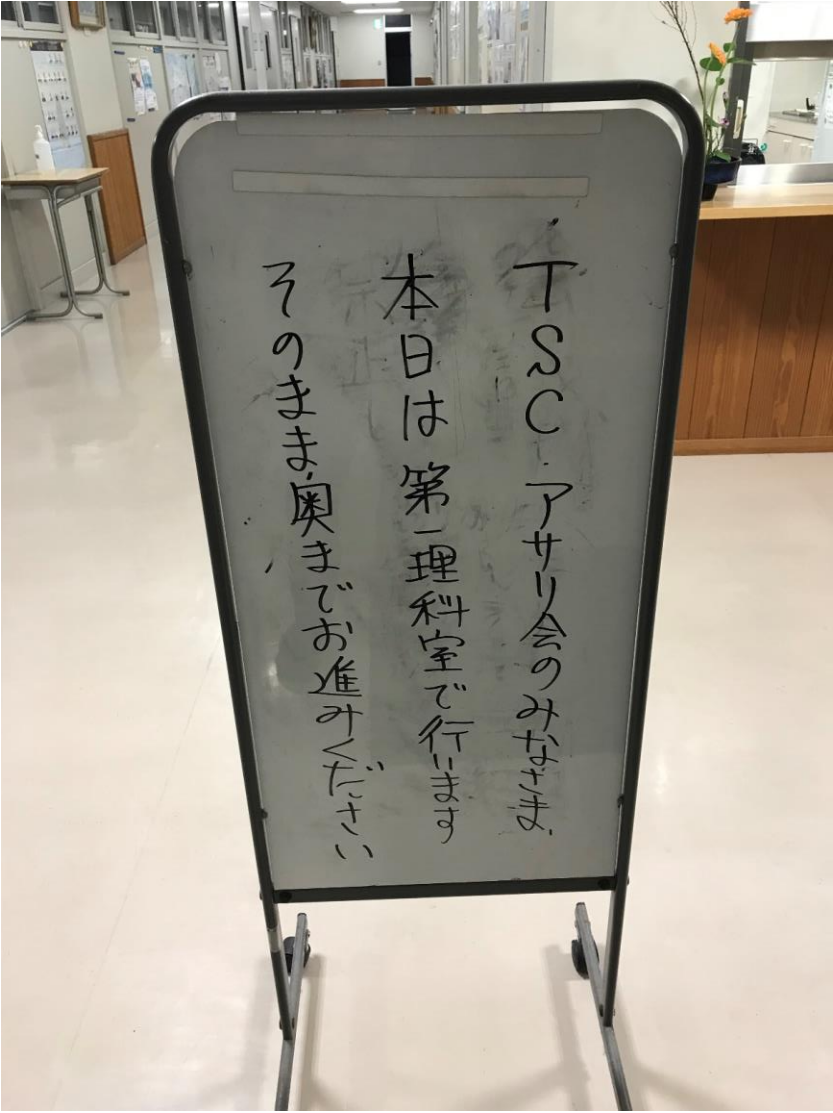 TSC・アサリ会のみなさま
本日は第一理科室で行います
そのまま奥までお進みください